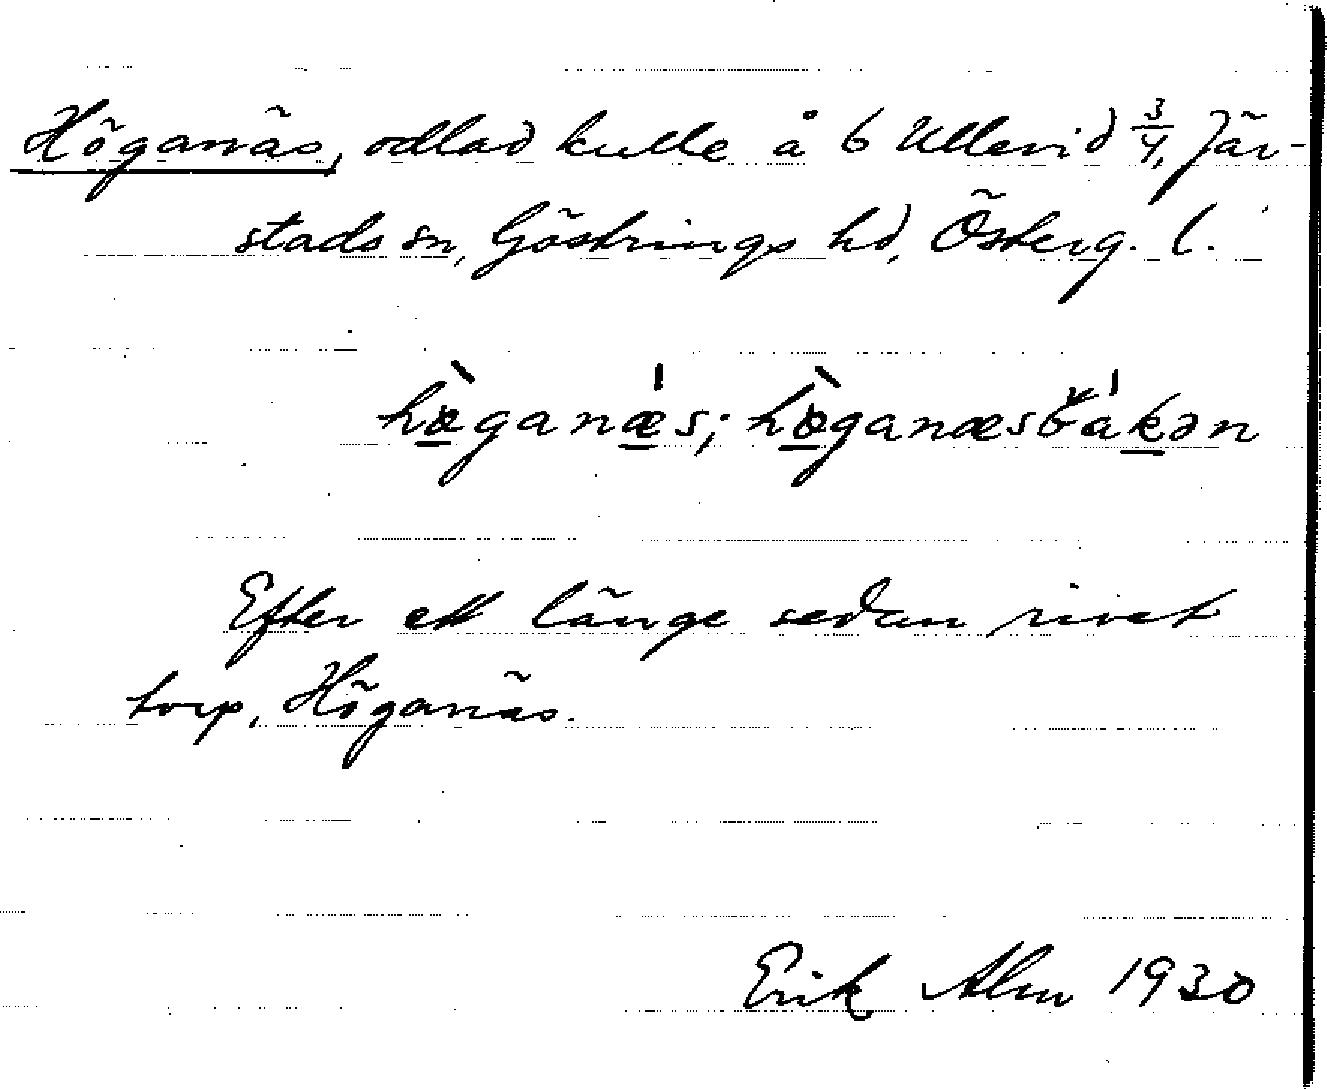 Höganäs, odlad kulle å 6 Ullevid 3/4, Jär-
stads sn, Göstrings hd, Österg. l.
hö̀ganǽs; hö̀ganæsbákən
Efter ett länge sedan rivet
torp, Höganäs.
Erik Alm 1930